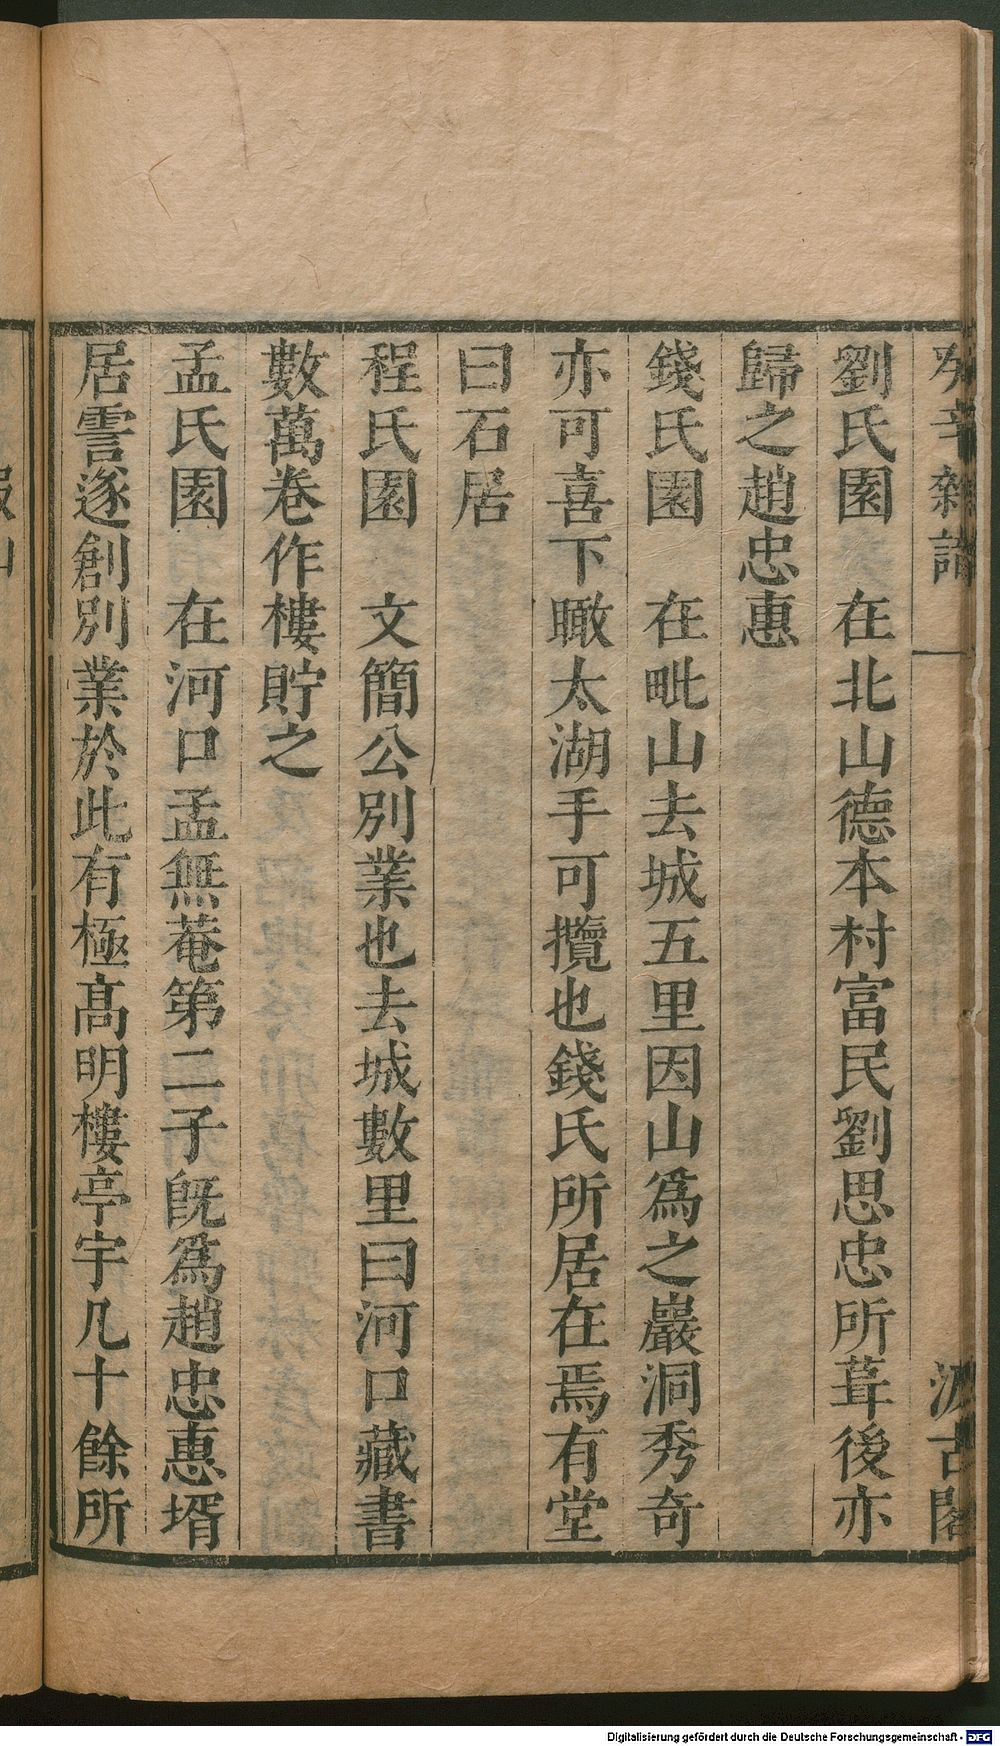 癸辛雜識
汲古閣
劉氏園 在北山德本村富民劉思忠所葺後亦
歸之趙忠惠
錢氏園 在毗山去城五里因山爲之巖洞秀奇
亦可喜下瞰太湖手可攬也錢氏所居在焉有堂
曰石居
程氏園 文簡公別業也去城數里曰河口藏書
數萬卷作樓貯之
孟氏園 在河口孟無菴第二子旣爲趙忠惠壻
居霅遂創別業於此有極高明樓亭宇凡十餘所
Digitalisierung gefördert durch die Deutsche Forschungsgemeinschaft - DFG